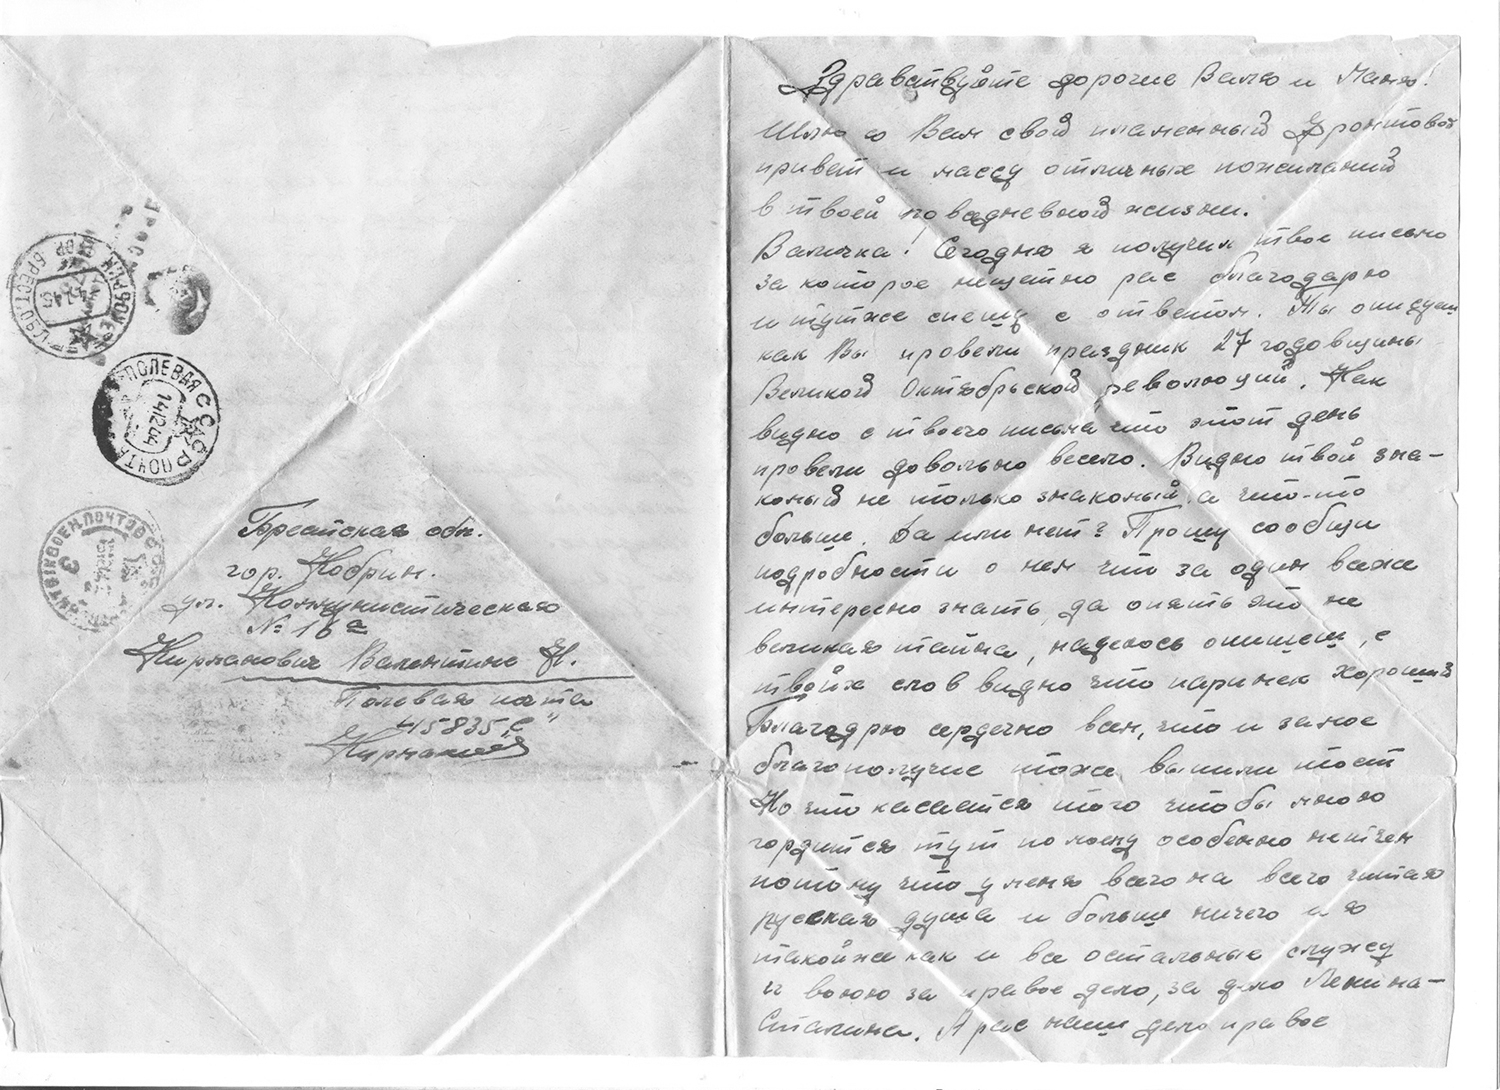 ПОЛЕВАЯ ПОЧТА
СССР
14 12 44
Брестская обл.
гор. Кобрин.
ул. Коммунистическая
№ 16а
Кирманович Валентине Н.
Полевая почта
45835 „С"
Здравствуйте дорогие Валя и Маня!
Шлю я Вам свой пламенный фронтовой
привет и массу отличных пожиланий
в твоей повседневной жизни.
Валичка! Сегодня я получил твое письмо
за которое нещетно рас благодарю
и тутже спешу с ответом. Ты описуеш
как Вы провели праздник 27 годовщины
Великой Октябрьской революций. Как
видно с твоего письма что этот день
провели довольно весело. Видно твой зна-
комый не только знакомый а что-то
больше. Да или нет? Прошу сообщи
подробности о нем что за один важа
интересно знать, да опять это не
великая тайна, надеюсь опишеш, с
твойх слов видно что паринек хороший
Благадрю сердечно вам, что и замое
благополучие тоже выпили тост
Но что касается того чтобы мною
гордится тут по моему особенно нетчем
потому что у меня всего на всего читая
русская душа и больше ничего и я
такойже как и все остальные служу
и воюю за правое дело, за дело Ленина-
Сталина. А рас наше дело правое